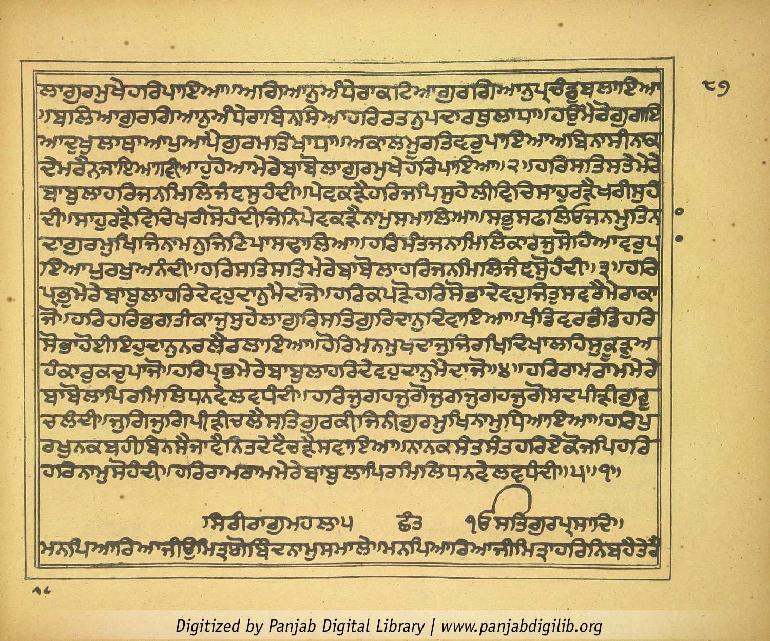 ੮੭
ਲਾਗੁਰਮੁਖੇਹਰਿਪਾਇਆ॥ਅਗਿਆਨੁਅੰਧੇਰਾਕਟਿਆਗੁਰਗਿਆਨੁਪ੍ਰਚੰਡੁਬਲਾਇਆ
॥ਬਲਿਆਗੁਰਗਿਆਨੁਅੰਧੇਰਾਬਿਨਸਿਆਹਰਿਰਤਨੁਪਦਾਰਥੁਲਾਧਾ॥ਹਉਮੈਰੋਗੁਗਇ
ਆਦੁਖੁਲਾਥਾਆਪੁਆਪੈਗੁਰਮਤਿਖਾਧਾ॥ਅਕਾਲਮੂਰਤਿਵਰੁਪਾਇਆਅਬਿਨਾਸੀਨਕ
ਦੇਮਰੈਨਜਾਇਆ॥ਵੀਆਹੁਹੋਆਮੇਰੇਬਾਬੋਲਾਗੁਰਮੁਖੇਹਰਿਪਾਇਆ॥੨॥ਹਰਿਸਤਿਸਤੇਮੇਰੇ
ਬਾਬੁਲਾਹਰਿਜਨਮਿਲਿਜੰਞਸੁਹੰਦੀ॥ਪੇਵਕੜੈਹਰਿਜਪਿਸੁਹੇਲੀਵਿਚਿਸਾਹੁਰੜੈਖਰੀਸੁਹੰ
ਦੀ॥ਸਾਹੁਰੜੈਵਿਚਿਖਰੀਸੋਹੰਦੀਜਿਨਿਪੇਵਕੜੈਨਾਮੁਸਮਾਲਿਆ॥ਸਭੁਸਫਲਿਓਜਨਮੁਤਿਨ
ਦਾਗੁਰਮੁਖਿਜਿਨਾਮਨੁਜਿਣਿਪਾਸਾਢਾਲਿਆ॥ਹਰਿਸੰਤਜਨਾਮਿਲਿਕਾਰਜੁਸੋਹਿਆਵਰੁਪਾ
ਇਆਪੁਰਖੁਅਨੰਦੀ॥ਹਰਿਸਤਿਸਤਿਮੇਰੇਬਾਬੋਲਾਹਰਿਜਨਮਿਲਿਜੰਞਸੋੁਹੰਦੀ॥੩॥ਹਰਿ
ਪ੍ਰਭੁਮੇਰੇਬਾਬੁਲਾਹਰਿਦੇਵਹੁਦਾਨੁਮੈਦਾਜੋ॥ਹਰਿਕਪੜੋਹਰਿਸੋਭਾਦੇਵਹੁਜਿਤੁਸਵਰੈਮੇਰਾਕਾ
ਜੋ॥ਹਰਿਹਰਿਭਗਤੀਕਾਜੁਸੁਹੇਲਾਗੁਰਿਸਤਿਗੁਰਿਦਾਨੁਦਿਵਾਇਆ॥ਖੰਡਿਵਰਭੰਡਿਹਰਿ
ਸੋਭਾਹੋਈਇਹੁਦਾਨੁਨਰਲੈਰਲਾਇਆ॥ਹੋਰਿਮਨਮੁਖਦਾਜੁਜਿਰਖਿਦਿਖਾਲਹਿਸੁਕੂੜੁਅ
ਹੰਕਾਰੁਕਚੁਪਾਜੋ॥ਹਰਿਪ੍ਰਭਮੇਰੇਬਾਬੁਲਾਹਰਿਦੇਵਹੁਦਾਨੁਮੈਦਾਜੋ॥੪॥ਹਰਿਰਾਮਰਾਮਮੇਰੇ
ਬਾਬੋਲਾਪਿਰਮਿਲਿਧਨਵੇਲਵਧੰਦੀ॥ਹਰਿਜੁਗਹਜੁਗੋਜੁਗਜੁਗਹਜੁਗੋਸਦਪੀੜੀਗੁਰੂ
ਚਲੰਦੀ॥ਜੁਗਿਜੁਗਿਪੀੜੀਚਲੈਸਤਿਗੁਰਕੀਜਿਨੀਗੁਰਮੁਖਿਨਾਮੁਧਿਆਇਆ॥ਹਰਿਪੁ
ਰਖੁਨਕਬਹੀਬਿਨਸੈਜਾਵੈਨਿਤਦੇਵੈਚੜੈਸਵਾਇਆ॥ਨਾਨਕਸੰਤਸੰਤਹਰਿਏਕੋਜਪਿਹਰਿ
ਹਰਿਨਾਮੁਸੋਹੰਦੀ॥ਹਰਿਰਾਮਰਾਮਮੇਰੇਬਾਬੁਲਾਪਿਰਮਿਲਿਧਨਵੇਲਵਧੰਦੀ॥੫॥੧॥
ਸਿਰੀਰਾਗੁਮਹਲਾ੫ ਛੰਤ ੴਸਤਿਗੁਰਪ੍ਰਸਾਦਿ॥
ਮਨਪਿਆਰਿਆਜੀਉਮਿਤ੍ਰਾਗੋਬਿੰਦਨਾਮੁਸਮਾਲੇ॥ਮਨਪਿਆਰਿਆਜੀਮਿਤ੍ਰਾਹਰਿਨਿਬਹੈਤੇਰੈ
Digitized by Panjab Digital Library | www.panjabdigilib.org